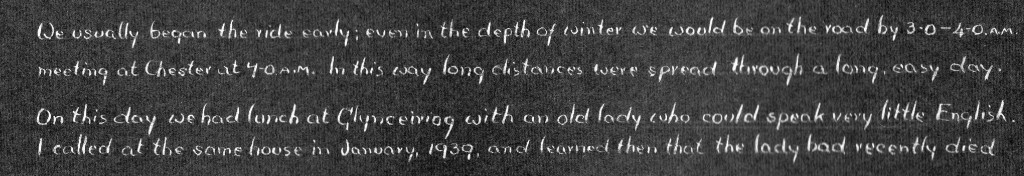 We usually began the ride early; even in the depth of winter we would be on the road by 3·0-4·0.A.M.
meeting at Chester at 4·0.A.M. In this way long distances were spread through a long, easy day.
On this day we had lunch at Glynceiriog with an old lady who could speak very little English.
I called at the same house in January, 1939, and learned then that the lady had recently died